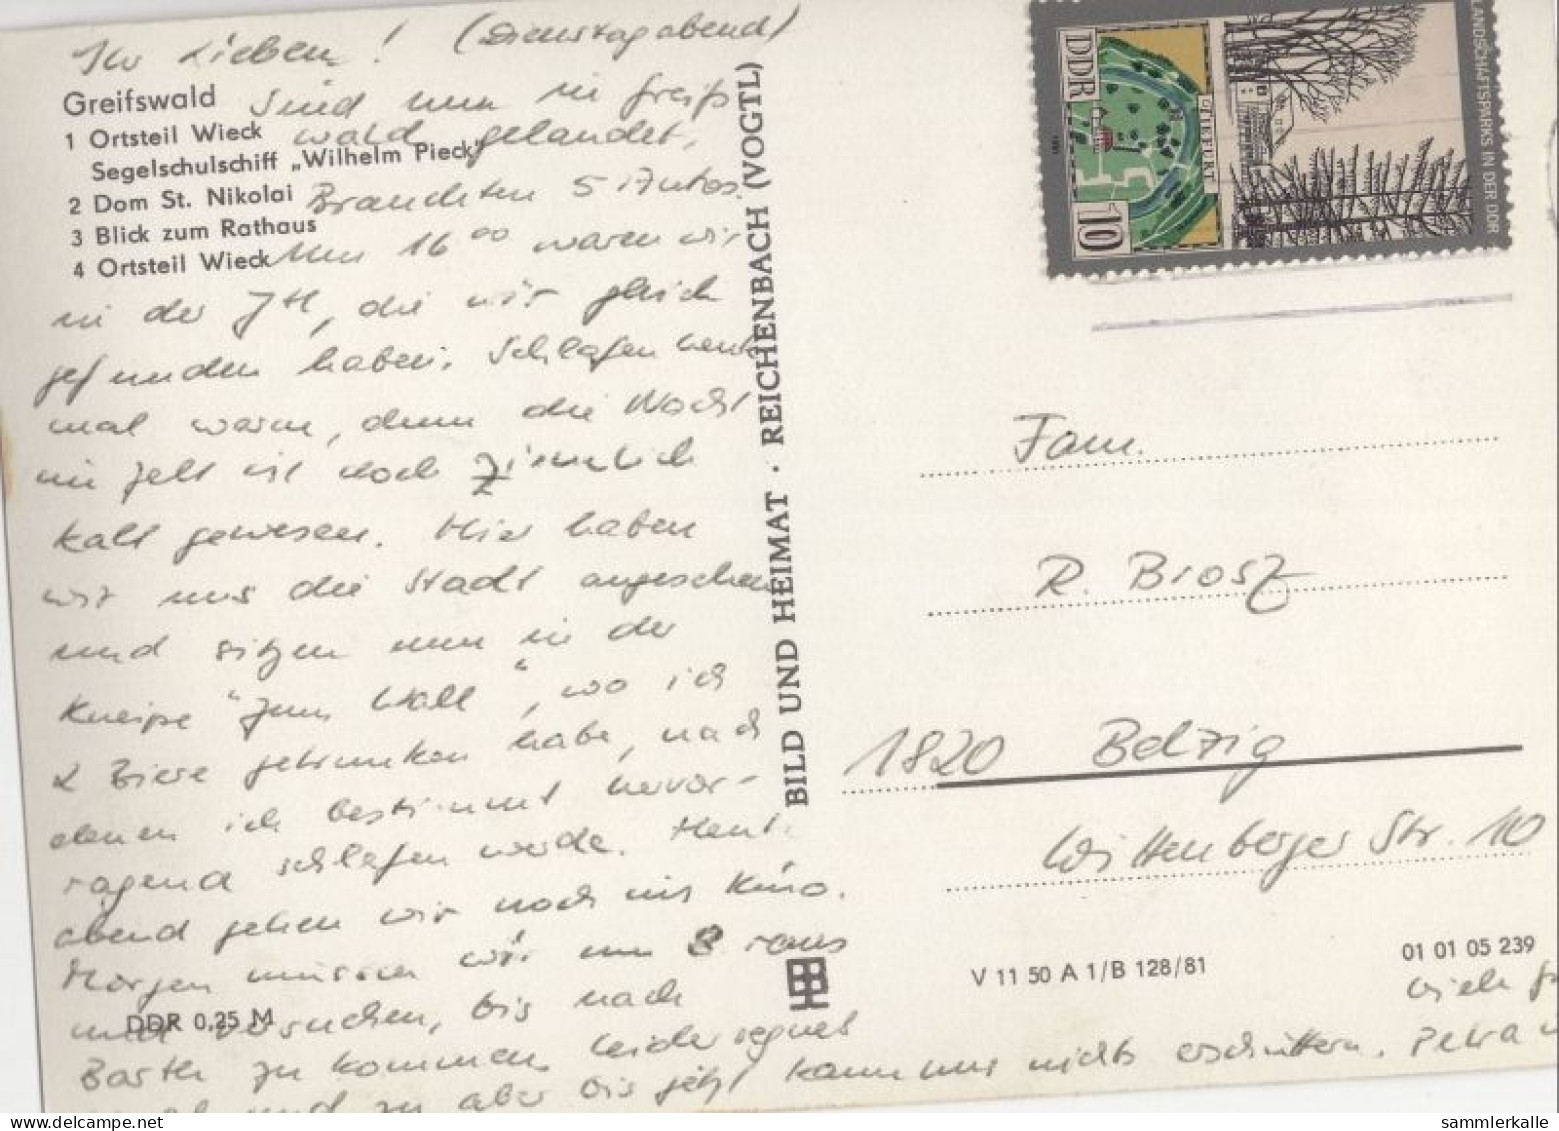 Ihr Lieben! (Dienstagabend)
Greifswald
1 Ortsteil Wieck
Segelschulschiff „Wilhelm Pieck"
2 Dom St. Nikolai
3 Blick zum Rathaus
4 Ortsteil Wieck
Sind nun in Greifs
wald gelandet,
Brauchten 5 Autos.
Um 16 00 waren wir
in der JH, die wir gleich
gefunden haben. Schlafen heute
mal warm, denn die Nacht
im Zelt ist noch ziemlich
kalt gewesen. Hier haben
wir uns die Stadt angesehen
und sitzen nun in der
Kneipe "Zum Wall", wo ich
2 Biere getrunken habe, nach
denen ich bestimmt hervor-
ragend schlafen werde. Heut
abend gehen wir noch ins Kino.
Morgen müssen wir um 8 raus
und versuchen, bis nach
DDR 0,25 M
Barth zu kommen, leider regnet
und zu aber bis jetzt kann uns nichts erschüttern.
Viele
Petra
BILD UND HEIMAT · REICHENBACH (VOGTL)
LANDSCHAFTSPARKS IN DER DDR
TIEFURT
DDR
10
1981
Fam.
R. Brosz
1820 Belzig
Wittenberger Str. 10
V 11 50 A 1/B 128/81
01 01 05 239
sammlerkalle